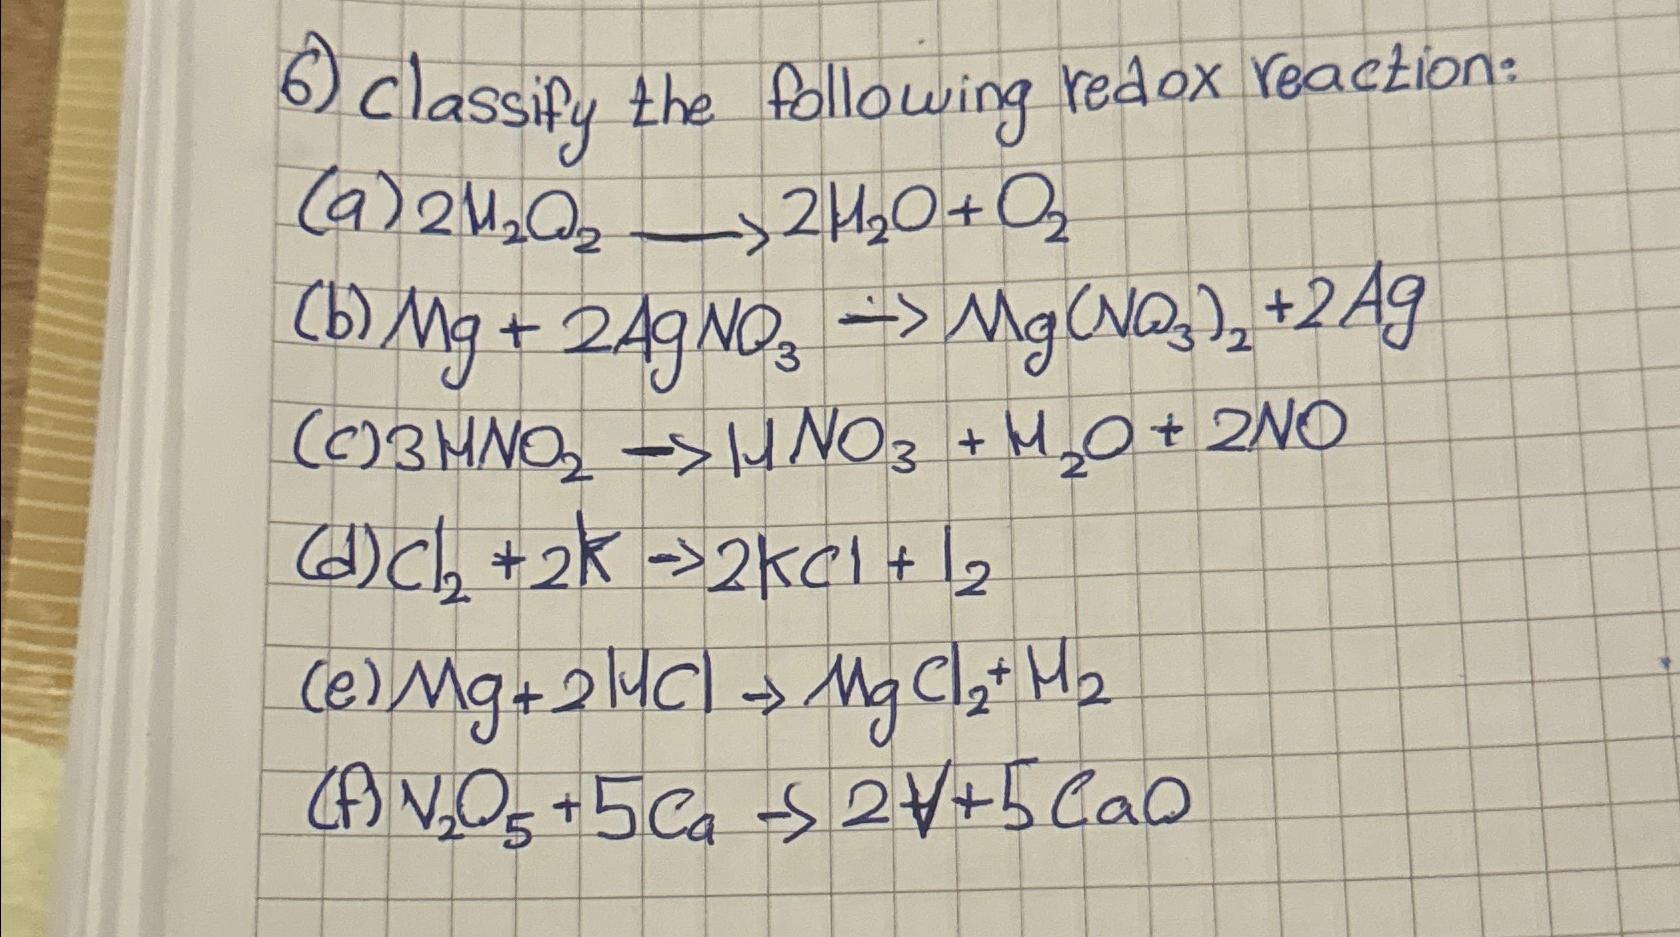 6) Classify the following redox reaction:
(a) 2H₂O₂ → 2H₂O + O₂
(b) Mg + 2AgNO₃ → Mg(NO₃)₂ + 2Ag
(c) 3HNO₂ → HNO₃ + H₂O + 2NO
(d) Cl₂ + 2K → 2KCl + I₂
(e) Mg + 2HCl → MgCl₂ + H₂
(f) V₂O₅ + 5Ca → 2V + 5CaO